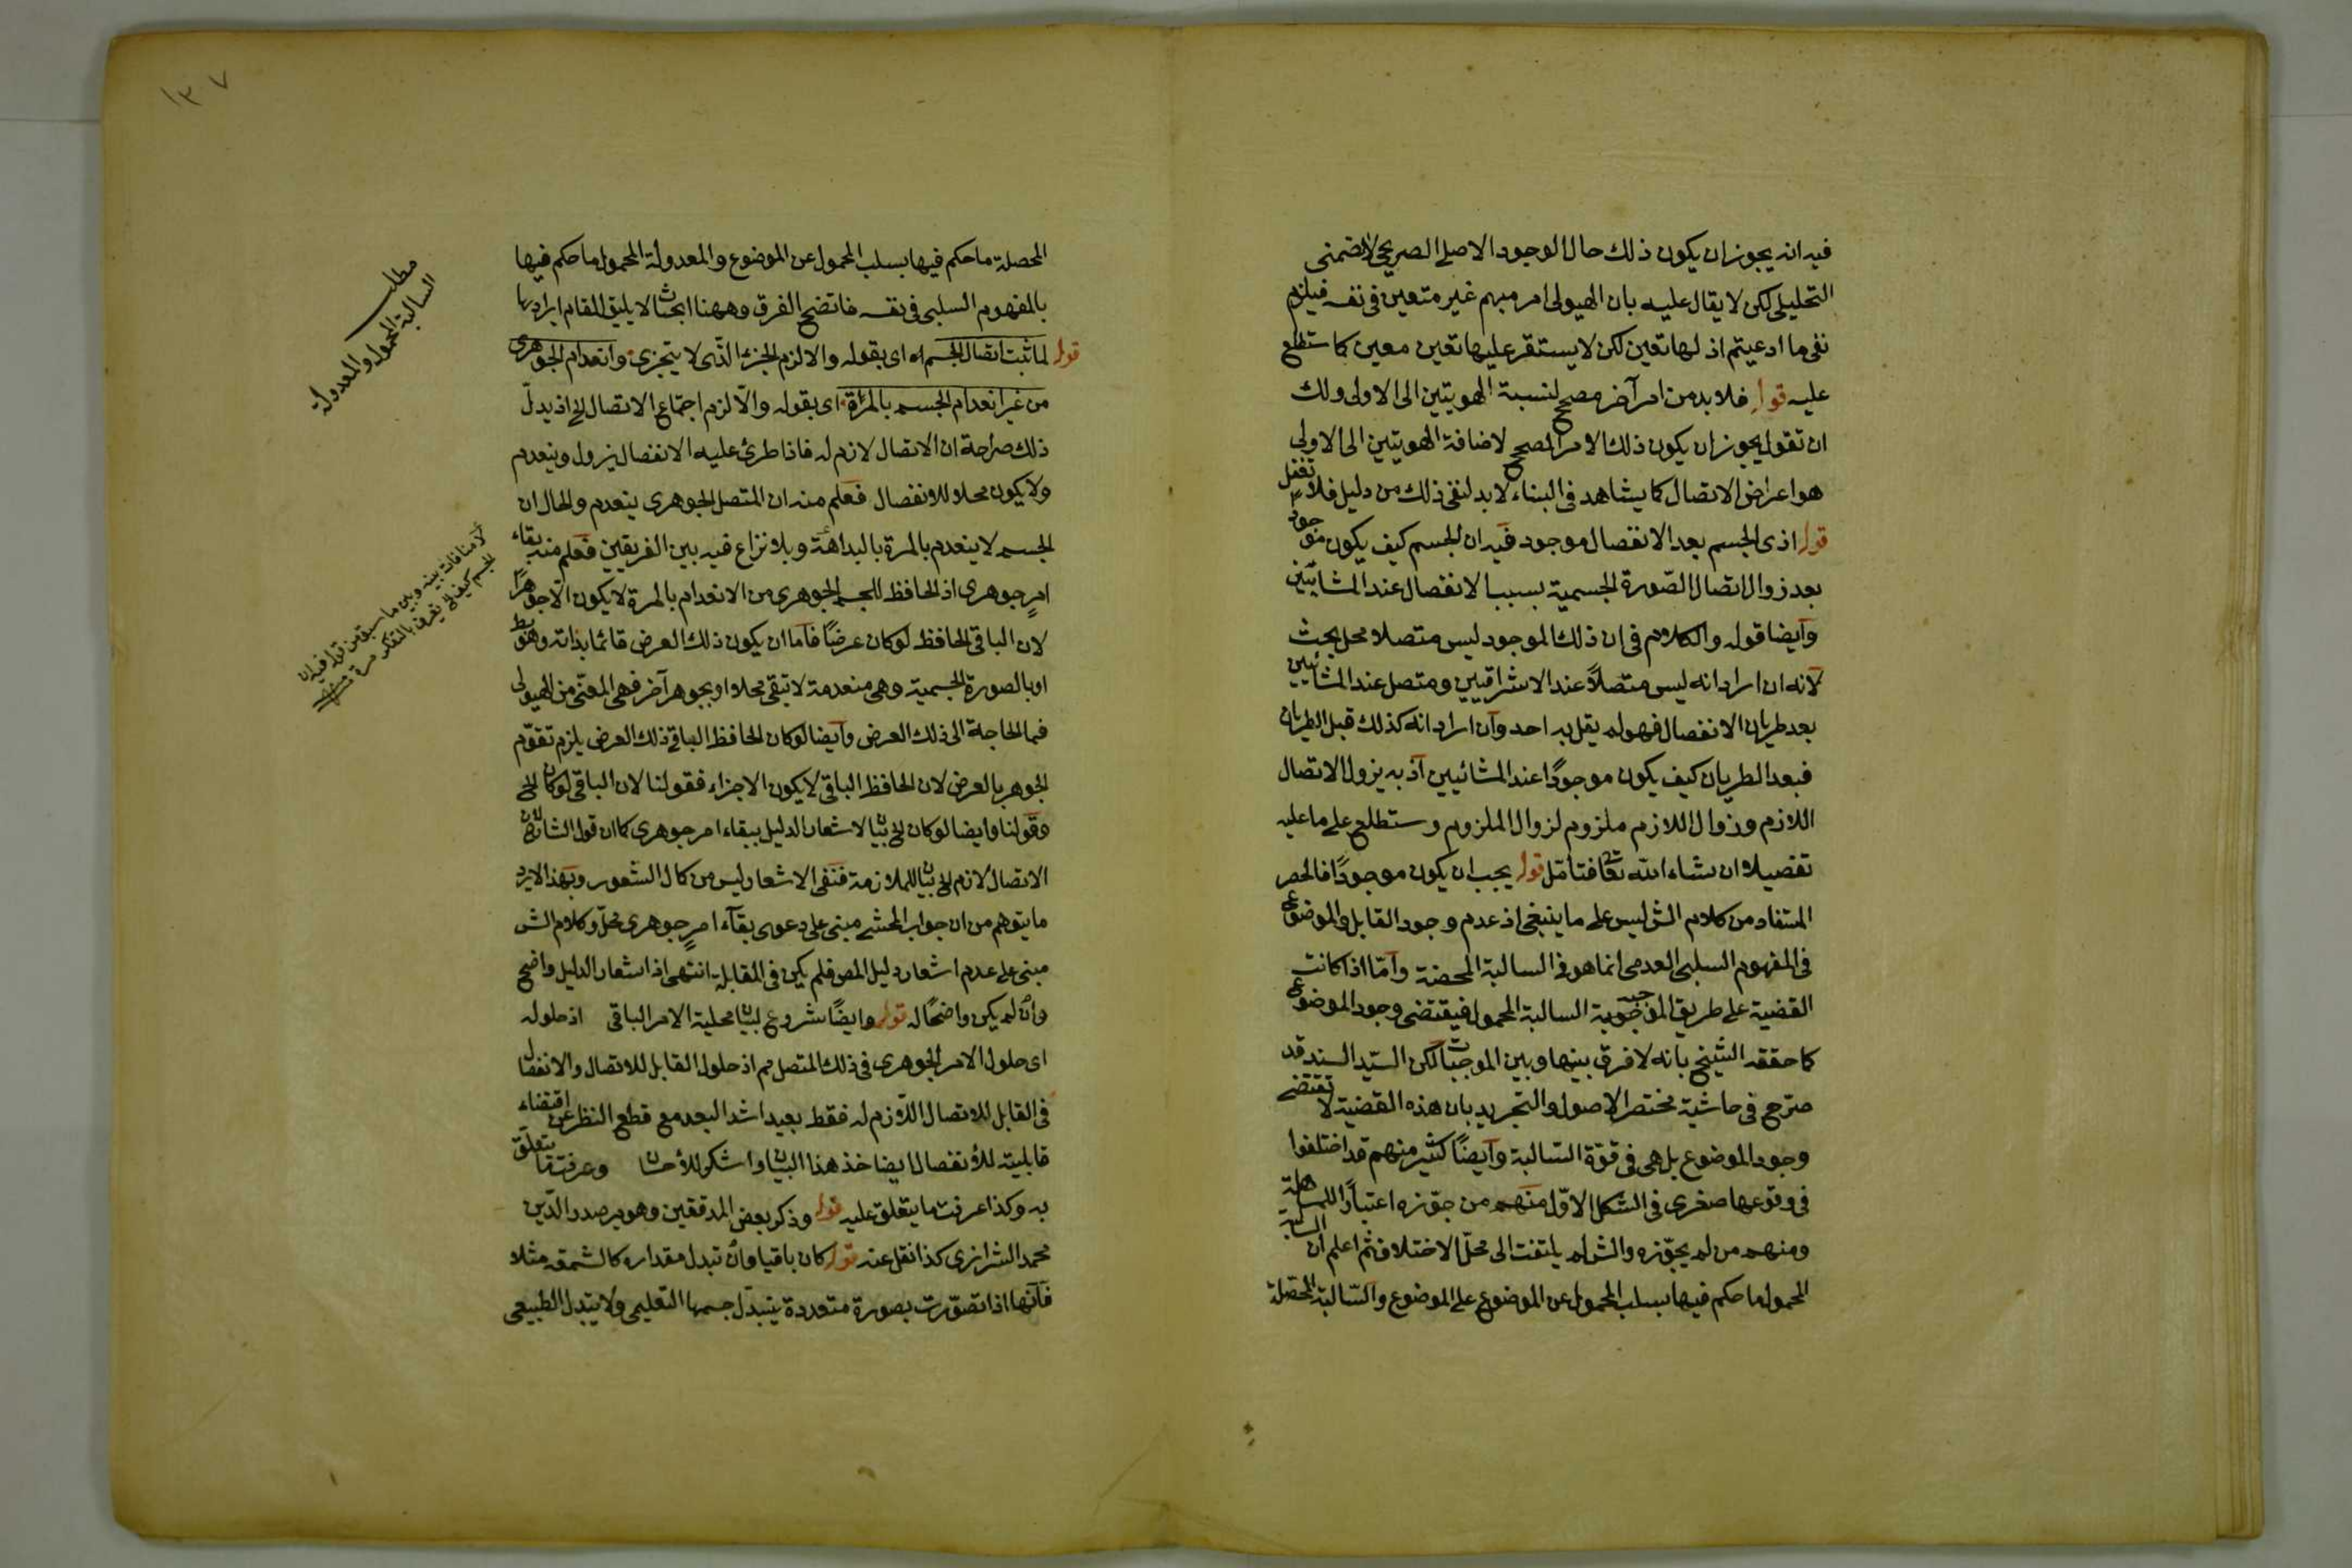 فيه انه يجوز ان يكون ذلك حال الوجود الاصلى الصريحى لا الضمنى
التحليلى لكن لا يقال عليه بان الهيولى امر مبهم غير متعين فى نفسه فيلزم
نفى ما ادعيتم اذ لها تعين لكن لا يستقر عليها تعين معين كما ستطلع
عليه قوله فلا بد من امر آخر مصحح لنسبة الهويتين الى الاولى ولك
ان تقول يجوز ان يكون ذلك الامر المصحح لاضافة الهويتين الى الاولى
هو اعراض الاتصال كما يشاهد فى البناء لا بد لنفى ذلك من دليل فلا تغفل
قوله اذ ى الجسم بعد الانفصال موجود فيه ان الجسم كيف يكون موجود
بعد زوال اتصال الصورة الجسمية بسبب الانفصال عند المشائين
وايضا قوله والكلام فى ان ذلك الموجود ليس متصلا محل بحث
لانه ان اراد انه ليس متصلاً عند الاشراقيين ومتصل عند المشائيين
بعد طريان الانفصال فهو لم يقل به احد وان اراد انه كذلك قبل الطريان
فبعد الطريان كيف يكون موجودًا عند المشائيين اذ به يزول الاتصال
اللازم وزوال اللازم ملزوم لزوال الملزوم وستطلع على ما عليه
تفصيلا ان شاء الله تعا فتامّل قوله يجب ان يكون موجودًا فالحصر
المستفاد من كلام الش ليس على ما ينبغى اذ عدم وجود القابل والموضوع
فى المفهوم السلبى العدمى انما هو فى السالبة المحضة وامّا اذا كانت
القضية على طريق الموجبة السالبة المحمول فيقتضى وجود الموضوع
كما حققه الشيخ بانه لا فرق بينها وبين الموجبات لكن السيّد السند قد
صرّح فى حاشية مختصر الاصول والتجريد بان هذه القضية لا تقتضى
وجود الموضوع بل هى فى قوّة السالبة وايضًا كثير منهم قد اختلفوا
فى وقوعها صغرى فى الشكل الاوّل منهم من جوّزه اعتبارًا للمساهلة
ومنهم من لم يجوّزه والش لم يلتفت الى محلّ الاختلاف ثم اعلم ان السالبة
المحمول ما حكم فيها بسلب المحمول عن الموضوع على الموضوع والسّالبة المحصّلة
١٣٧
المحصلة ما حكم فيها بسلب المحمول عن الموضوع والمعدولة المحمول ما حكم فيها
بالمفهوم السلبى فى نفسه فاتضح الفرق وههنا ابحاث لا يليق المقام ايرادها
قوله لما ثبت اتصال الجسم اه اى بقوله والا لزم الجزء الذّى لا يتجزى وانعدام الجوهرى
من غير انعدام الجسم بالمرّة اى بقوله والّا لزم اجتماع الاتصال الخ اذ يدلّ
ذلك صراحة ان الاتصال لازم له فاذا طرئ عليه الانفصال يزول وينعدم
ولا يكون محلا للانفصال فعلم منه ان المتصل الجوهرى ينعدم والحال ان
الجسم لا ينعدم بالمرة بالبداهة وبلا نزاع فيه بين الفريقين فعلم منه بقاء
امرٍ جوهرى اذ الحافظ للجسم الجوهرى من الانعدام بالمرة لا يكون الّا جوهرًا
لان الباقى الحافظ لو كان عرضًا فاما ان يكون ذلك العرض قائما بذاته وهو بط
او بالصورة الجسمية وهى منعدمة لا تبقى محلا او بجوهر آخر فهى المعنّى من الهيولى
فما الحاجة الى ذلك العرض وايضا لو كان الحافظ الباقى ذلك العرض يلزم تقوّم
الجوهر بالعرض لان الحافظ الباقى لا يكون الا جزاء فقولنا لان الباقى لو كان الخ
وقولنا وايضا لو كان الخ بيان لاشعار الدليل ببقاء امر جوهرى كما ان قول الشارح لان
الاتصال لازم الخ بيان للملازمة فنفى الاشعار ليس من كمال الشعور وبهذا لا يرد
ما يتوهم من ان جواب المحشى مبنى على دعوى بقآء امرٍ جوهرى محلّ وكلام الش
مبنى على عدم اشعار دليل المص فلم يكن فى المقابلة انتهى اذ اشعار الدليل واضح
وان لم يكن واضحًا له قوله وايضًا شروع لبيان محلية الامر الباقى اذ حلوله
اى حلول الامر الجوهرى فى ذلك المتصل مم اذ حلول القابل للاتصال والانفصال
فى القابل للاتصال اللّازم له فقط بعيد اشد البعد مع قطع النظر عن اقتضاء
قابليته للأنفصال ايضا خذ هذا البيان واشكر للأحسان وعرفت ما يتعلّق
به وكذا عرفت ما يتعلق عليه قوله وذكر بعض المدققين وهو مير صدر الدّين
محمد الشرازى كذا نقل عنه قوله كان باقيا وان تبدل مقداره كالشمعة مثلا
فآنّها اذا تصوّرت بصورة متعددة يتبدّل جسمها التعليمى ولا يتبدل الطبيعى
مطلب
السالبة المحمول والمعدولة
لا منافات بينه وبين ما سبق من قوله فيه ان
الجسم كيف الخ تعرف بالتفكر مرة منه